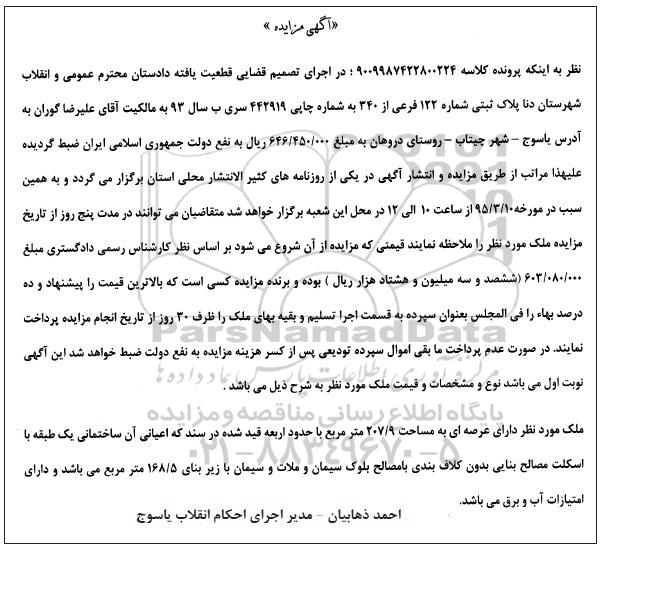 «آگهی مزایده»
نظر به اینکه پرونده کلاسه ۹۰۰۹۹۸۷۴۲۲۸۰۰۲۲۴ ؛ در اجرای تصمیم قضایی قطعیت یافته دادستان محترم عمومی و انقلاب
شهرستان دنا پلاک ثبتی شماره ۱۲۲ فرعی از ۳۴۰ به شماره چاپی ۴۴۲۹۱۹ سری ب سال ۹۳ به مالکیت آقای علیرضا گوران به
آدرس یاسوج – شهر چیتاب – روستای دروهان به مبلغ ۶۴۶/۴۵۰/۰۰۰ ریال به نفع دولت جمهوری اسلامی ایران ضبط گردیده
علیهذا مراتب از طریق مزایده و انتشار آگهی در یکی از روزنامه های کثیر الانتشار محلی استان برگزار می گردد و به همین
سبب در مورخه ۹۵/۳/۱۰ از ساعت ۱۰ الی ۱۲ در محل این شعبه برگزار خواهد شد متقاضیان می توانند در مدت پنج روز از تاریخ
مزایده ملک مورد نظر را ملاحظه نمایند قیمتی که مزایده از آن شروع می شود بر اساس نظر کارشناس رسمی دادگستری مبلغ
۶۰۳/۰۸۰/۰۰۰ (ششصد و سه میلیون و هشتاد هزار ریال ) بوده و برنده مزایده کسی است که بالاترین قیمت را پیشنهاد و ده
درصد بهاء را فی المجلس بعنوان سپرده به قسمت اجرا تسلیم و بقیه بهای ملک را ظرف ۳۰ روز از تاریخ انجام مزایده پرداخت
نمایند. در صورت عدم پرداخت ما بقی اموال سپرده تودیعی پس از کسر هزینه مزایده به نفع دولت ضبط خواهد شد این آگهی
نوبت اول می باشد نوع و مشخصات و قیمت ملک مورد نظر به شرح ذیل می باشد .
ملک مورد نظر دارای عرصه ای به مساحت ۲۰۷/۹ متر مربع با حدود اربعه قید شده در سند که اعیانی آن ساختمانی یک طبقه با
اسکلت مصالح بنایی بدون کلاف بندی بامصالح بلوک سیمان و ملات و سیمان با زیر بنای ۱۶۸/۵ متر مربع می باشد و دارای
امتیازات آب و برق می باشد.
احمد ذهابیان – مدیر اجرای احکام انقلاب یاسوج
ParsNamadData
مرکز فرآوری اطلاعات پارس نماد داده ها
پایگاه اطلاع رسانی مناقصه و مزایده
۰۲۱-۸۸۳۴۹۶۷۰-۵